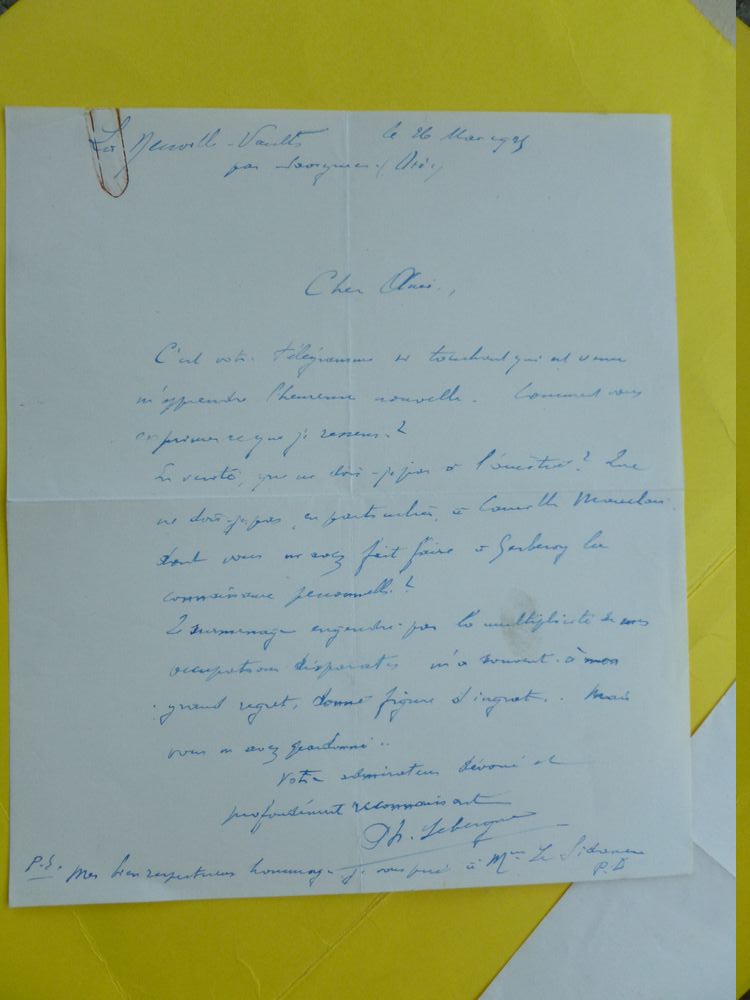 La Neuville-Vault le 26 Mars 1925
par (Oise)
Cher Ami,
C'est votre télégramme si touchant qui est venu
m'apprendre l'heureuse nouvelle. Comment vous
exprimer ce que je ressens ?
En vérité, que ne dois-je pas à l'amitié ? Que
ne dois-je pas, en particulier, à Camille Mauclair
dont vous m'avez fait faire à Gerberoy la
connaissance personnelle ?
Le surmenage engendré par la multiplicité de mes
occupations disparates m'a souvent à mon
grand regret, donné figure d'ingrat. Mais
vous m'avez pardonné..
Votre admirateur dévoué et
profondément reconnaissant
Ph. Lebesgue
P.S. Mes bien respectueux hommages je vous prie à Mme Le Sidaner